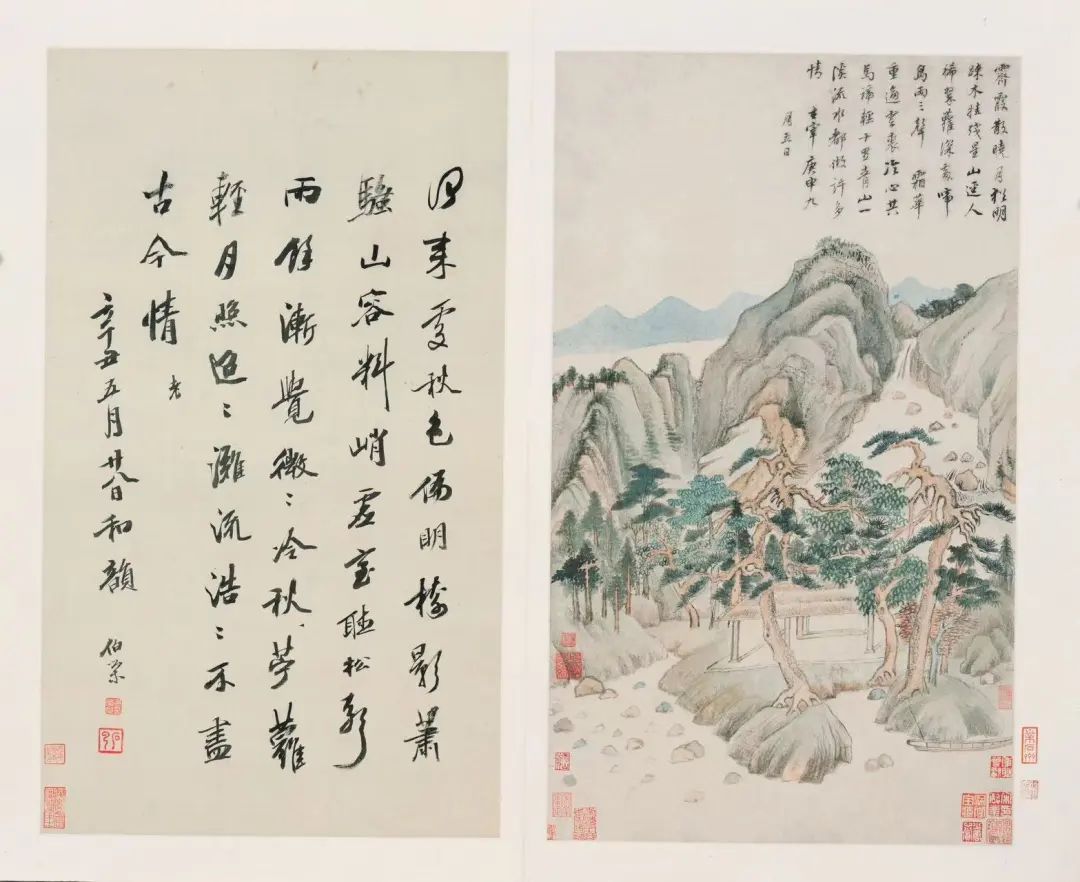 霽霞散曉月猶明
疎木挂殘星山逕人
稀翠蘿深處啼
鳥兩三聲 霜華
重逼雲裘冷心共
馬蹄輕十里青山一
溪流水都做許多
情 玄宰 庚申九
月五日
來處秋色偏明 影蕭
騷山容料峭虛室聽松
雨餘漸覺微〻冷秋 蘿
輕月照迢〻灘流浩〻不盡
古今情
辛丑五月廿八日和韻
伯